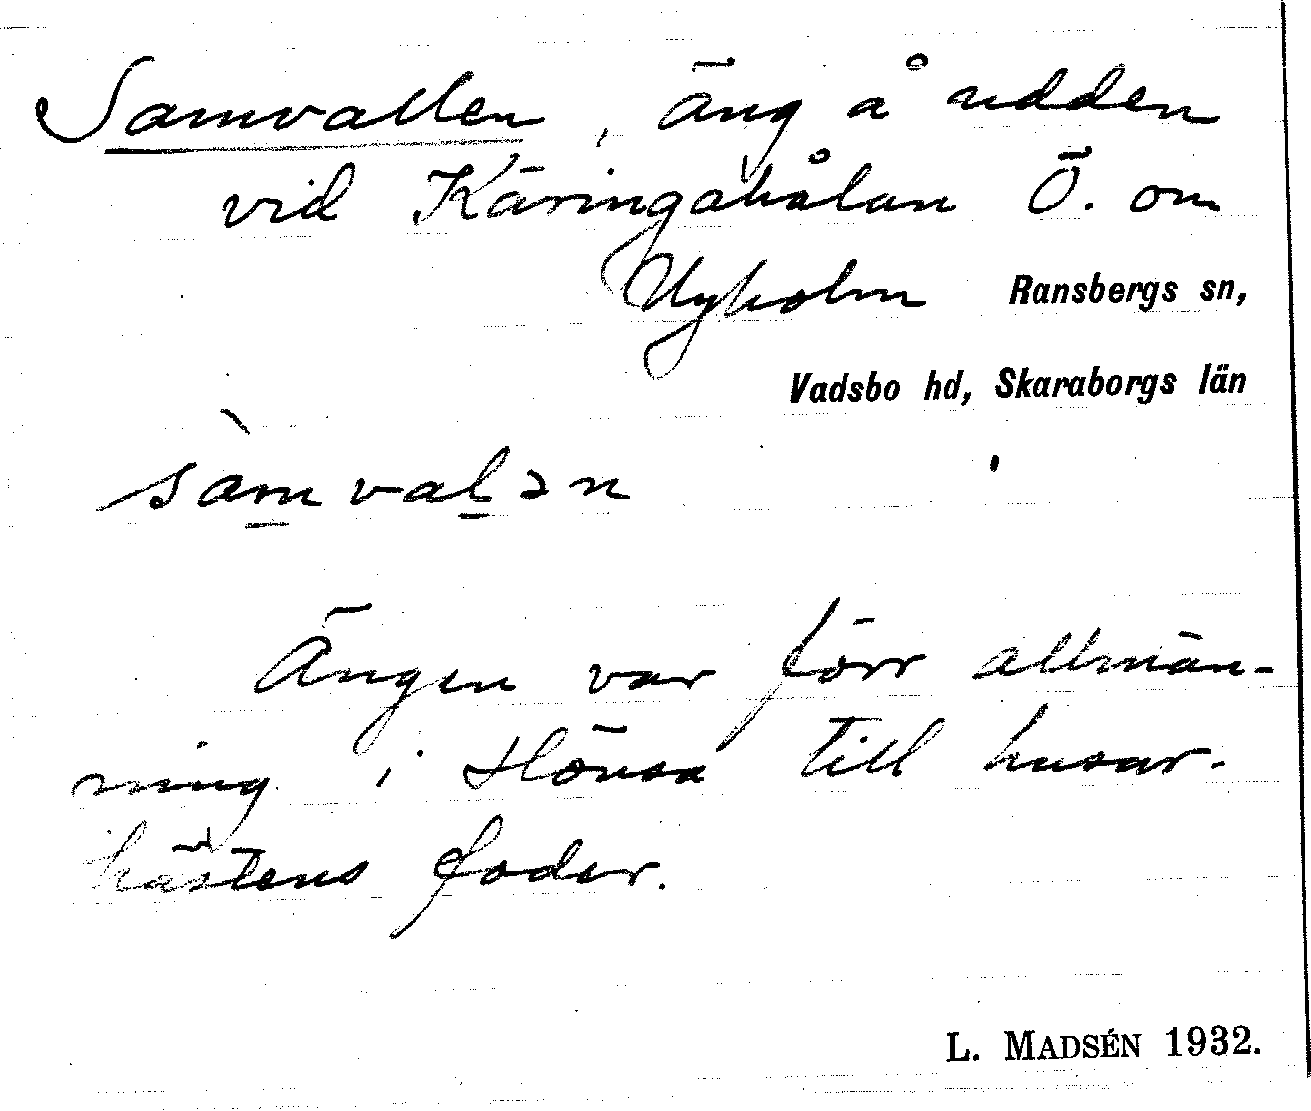 Samvallen, äng å udden
vid Käringahålan Ö. om
Nyholm Ransbergs sn,
Vadsbo hd, Skaraborgs län
sàmvalən
Ängen var förr allmän-
ning i Hönsa till husar-
hästens foder.
L. MADSÉN 1932.